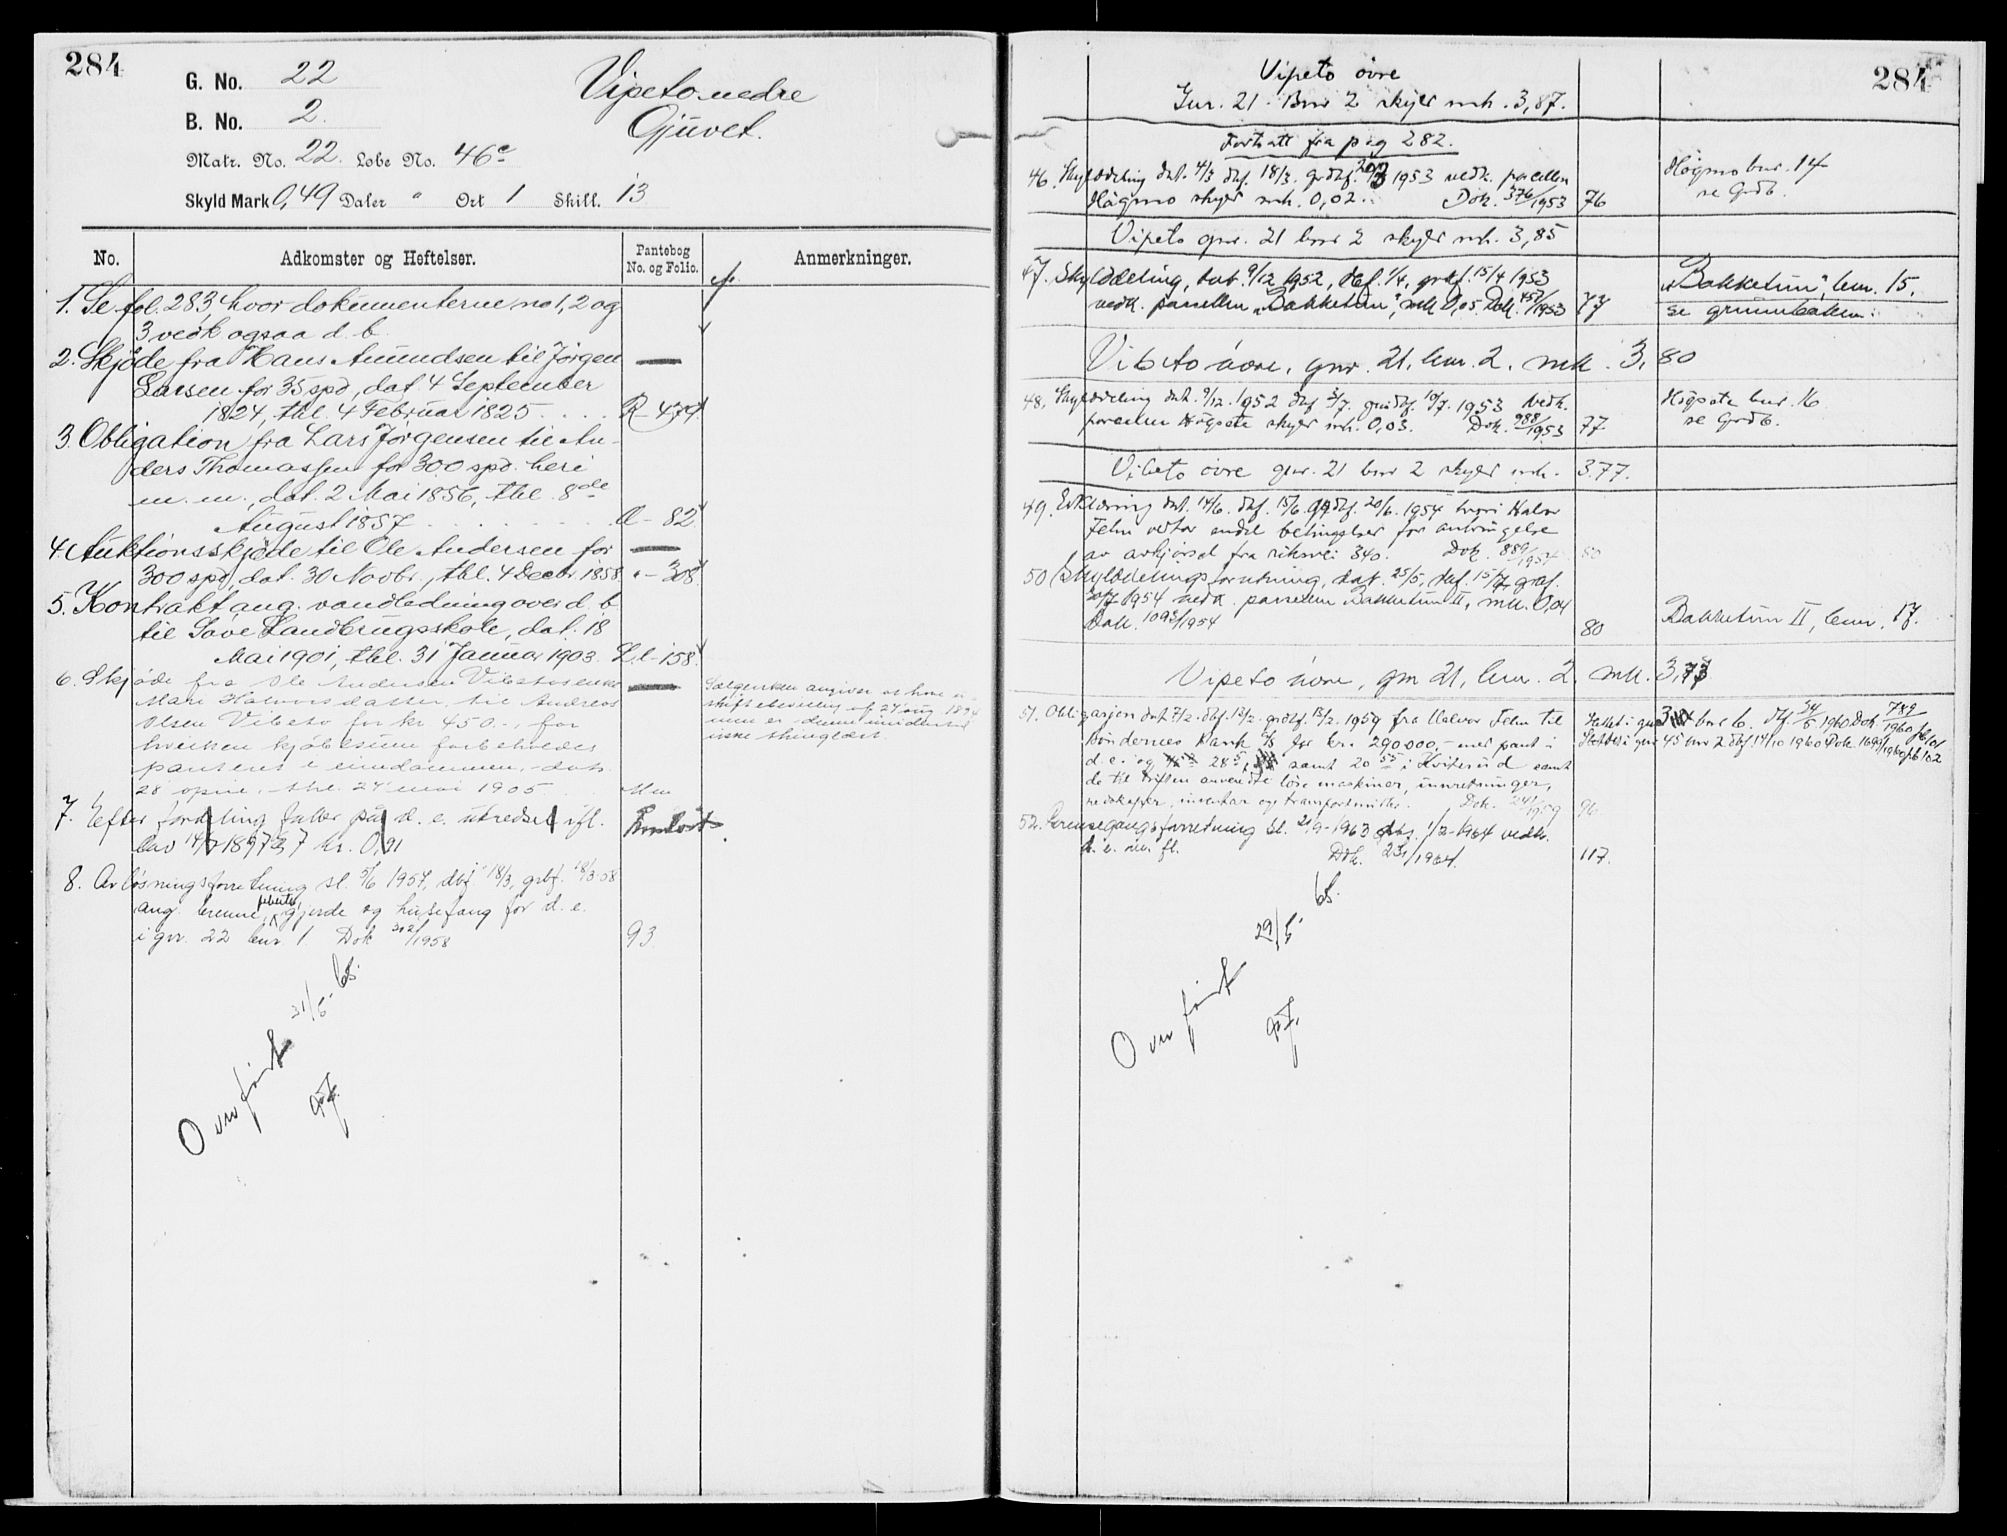 284
G. No. 22
B. No. 2.
Matr. No. 22. Løbe No. 46c
Skyld Mark 0,49 Daler " Ort 1 Skill. 13
Vipeto nedre
Gjuvet.
No. Adkomster og Heftelser. Pantebog No. og Folio. Anmerkninger.
1. Se fol. 283, hvor dokumenterne no 1, 2 og
3 vedk ogsaa d. b.
2. Skjøde fra Hans Amundsen til Jørgen
Larsen for 35 spd, dat 4 September
1824, thl. 4 Februar 1825 . . . . R - 479.
3. Obligation fra Lars Jørgensen til An-
ders Thomassen for 300 spd. heri
m. m., dat. 2 Mai 1856, thl. 8de
August 1857 . . . . . . . . . . - 82
4. Auktionsskjøde til Ole Andersen for
300 spd, dat. 30 Novbr., thl. 4 Decbr. 1858. " - 308.
5. Kontrakt ang. vandledning over d. b.
til Søve Landbrugsskole, dat. 18
Mai 1901, thl. 31 Januar 1903. - 158.
6. Skjøde fra Ole Andersen
Mari Halvorsdatter til Andreas
Olsen Vibeto for kr 450.-, for
hvilken kjøbesum forbeholdes
panteret i eiendommen, - dat.
28 april, thl. 27 mai 1905
7. Efter fordeling falder på d. e. utredsel ifl.
lav 1897 kr. 0,91
8. Avløsningsforretning sl. 5/6 1957, dbf 18/3, grbf. 18/3 58
ang. brenne, febeite, gjerde og husefang for d. e.
i gnr. 22 bnr 1 Dok 302/1958 93
Overført 31/5- 65.
284
Vipeto övre
Gnr. 21. Bnr 2 skyld mk. 3,87.
Fortsatt fra pag 282.
46. Skylddeling dat. 4/3 dbf. 18/3. grdbf. 1953 vedk. parcellen
Högmo skyld mk. 0,02. Dok. 376/1953 76
Högmo bnr. 14
se Grdb.
Vipeto gnr. 21 bnr 2 skyld mk. 3,85
47. Skylddeling, dat. 9/12 1952, dbf. 1/4, grbf. 15/4 1953
vedk. parsellen "Bakketun", mk 0,05. Dok. 457/1953 77
"Bakketun", bnr. 15.
se grunnboken.
Vibeto övre, gnr. 21, bnr. 2. mk. 3.80
48. Skylddeling dat. 9/12. 1952 dbf 2/7. grdbf. 10/7. 1953 vedk.
parcellen Högsete skyld mk. 0,03. Dok. 988/1953 77
Högsete bnr. 16
se Grdb.
Vibeto övre gnr. 21 bnr 2 skyld mk. 3.77.
49. Erklæring dat. 14/6. dbf. 15/6. grdbf. 20/6. 1954 hvori Halvor
Fehn vedtar endel betingelser for anbringelse
av avkjørsel fra riksvei 340. Dok. 889/1954 80
50. Skylddelingsforretning, dat. 25/5, dbf. 15/7, grbf.
1954 vedk. parsellen Bakketun II, mk. 0,04
Dok. 1092/1954 80
Bakketun II, bnr. 17.
Vipeto övre, gnr 21, bnr. 2, mk. 3,73
51. Obligasjon dat 7/2. dbf. 13/2. grdbf. 13/2. 1959 fra Halvor Fehn til
Böndernes Bank A/S for kr. 290.000,- med pant i
d. e. og samt 20 55 i Kviteseid samt
de til driften anvendte løse maskiner, innretninger,
redskaper, inventar og transportmidler. Dok. 241/1959 96
52. Grensegangsforretning sl. 21/9 - 1963 dbf. 1/2 - 1964 vedk.
d. e. m. fl. Dok. 231/1964. 117.
Overført 29/5- 65.